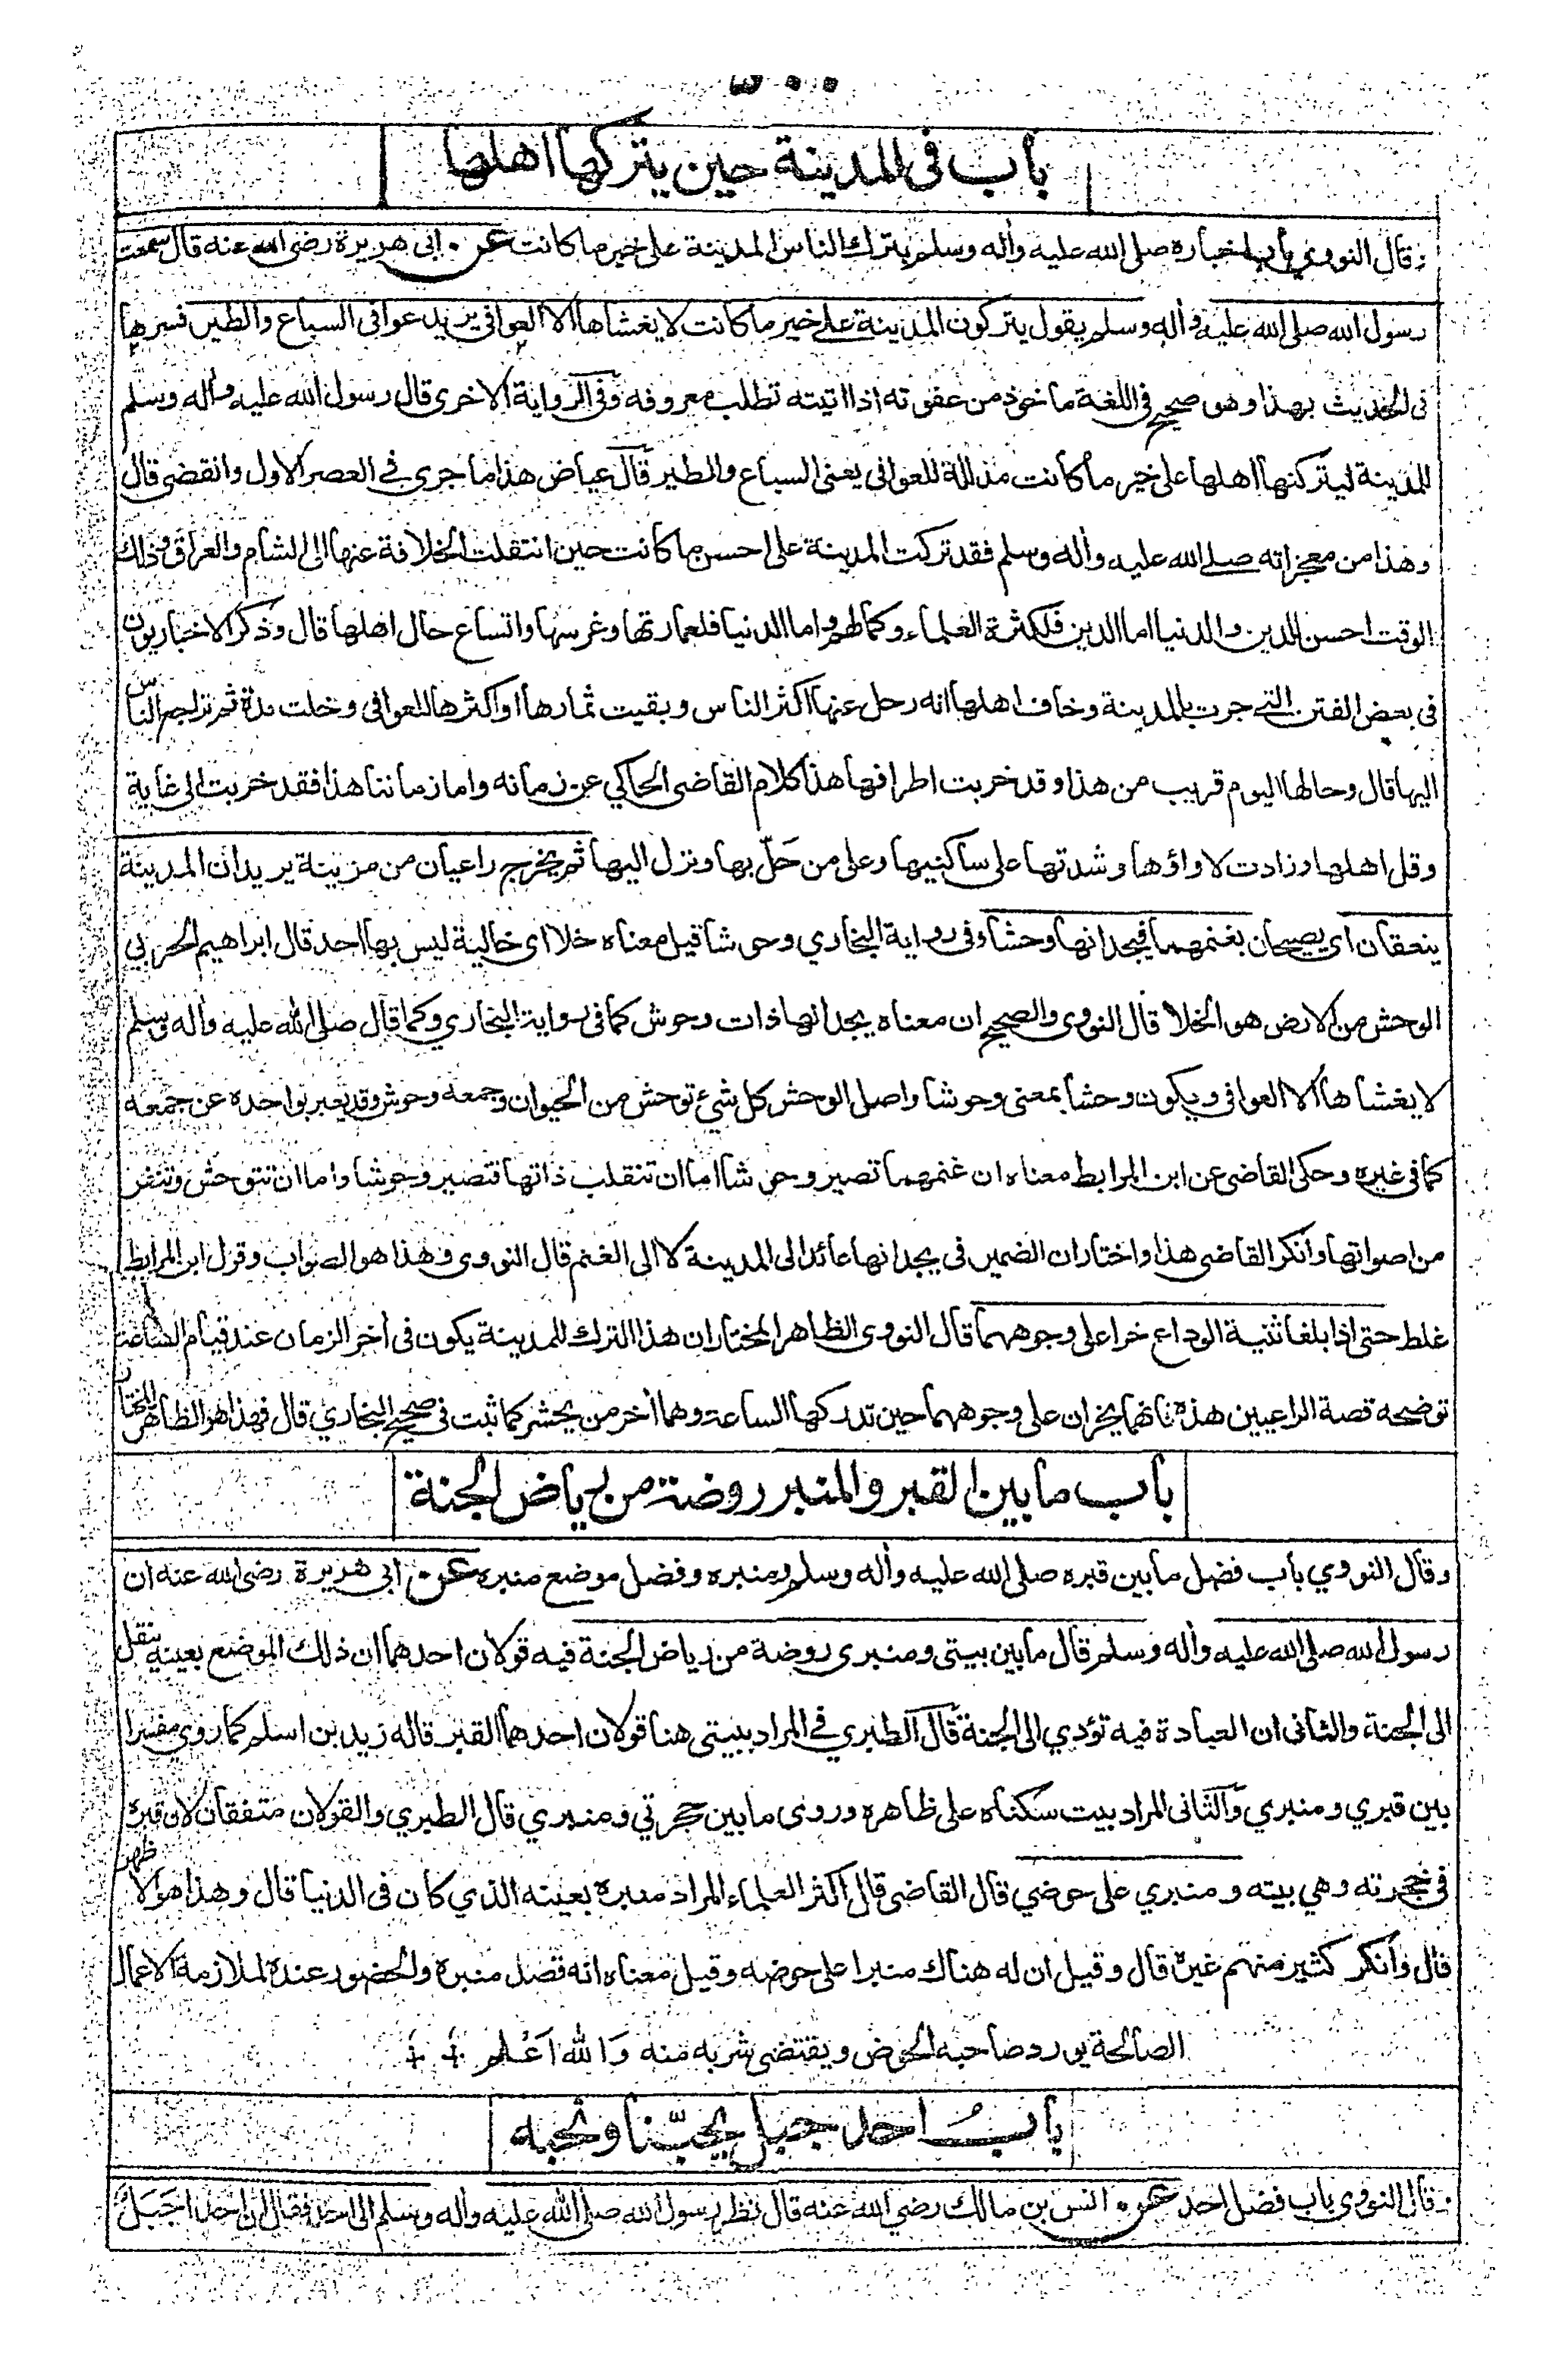 ٥٠٠
باب في المدينة حين يتركها اهلها
وقال النووي باب اخباره صلى الله عليه وأله وسلم بترك الناس المدينة على خير ما كانت عن ابى هريرة رضى الله عنه قال سمعت
رسول الله صلى الله عليه وأله وسلم يقول يتركون المدينة على خير ما كانت لا يغشاها الا العوافي يريد عوافى السباع والطير فسرها
فى الحديث بهذا وهو صحيح في اللغة ماخوذ من عفوته اذا اتيته تطلب معروفه وفي الرواية الاخرى قال رسول الله عليه وأله وسلم
للمدينة ليتركنها اهلها على خير ما كانت مذللة للعوافى يعنى السباع والطير قال عياض هذا ما جرى في العصر الاول وانقضى قال
وهذا من معجزاته صلى الله عليه وأله وسلم فقد تركت المدينة على احسن ما كانت حين انتقلت الخلافة عنها الى الشام والعراق وذلك
الوقت احسن للدين والدنيا اما الدين فلكثرة العلماء وكمالهم واما الدنيا فلعمارتها وغرسها واتساع حال اهلها قال وذكر الاخباريون
فى بعض الفتن التي جرت بالمدينة وخاف اهلها انه رحل عنها اكثر الناس وبقيت ثمارها او اكثرها للعوافى وخلت مدة ثم تراجع الناس
اليها قال وحالها اليوم قريب من هذا وقد خربت اطرافها هذا كلام القاضى الحاكي عن زمانه واما زماننا هذا فقد خربت الى غاية
وقل اهلها وزادت لاواؤها وشدتها على ساكنيها وعلى من حَلّ بها ونزل اليها ثم يخرج راعيان من مزينة يريدان المدينة
ينعقان اى يصيحان بغنمهما فيجدانها وحشا وفى رواية البخاري وحوشا قيل معناه خلا اى خالية ليس بها احد قال ابراهيم الحربي
الوحش من الارض هو الخلا قال النووى والصحيح ان معناه يجدانها ذات وحوش كما فى رواية البخاري وكما قال صلى الله عليه وأله وسلم
لا يغشاها الا العوافى ويكون وحشا بمعنى وحوشا واصل الوحش كل شيء توحش من الحيوان وجمعه وحوش وقد يعبر بواحده عن جمعه
كما فى غيره وحكى القاضى عن ابن المرابط معناه ان غنمهما تصير وحوشا اما ان تنقلب ذاتها فتصير وحوشا واما ان تتوحش وتنفر
من اصواتها وانكر القاضى هذا واختار ان الضمير فى يجدانها عائد الى المدينة لا الى الغنم قال النووى وهذا هو الصواب وقول ابن المرابط
غلط حتى اذا بلغا ثنية الوداع خرا على وجوههما قال النووى الظاهر المختار ان هذا الترك للمدينة يكون فى أخر الزمان عند قيام الساعة
توضحه قصة الراعيين هذه فانهما يخران على وجوههما حين تدركها الساعة وهما أخر من يحشر كما ثبت فى صحيح البخاري قال فهذا هو الظاهر المختار
باب ما بين القبر والمنبر روضة من رياض الجنة
وقال النووي باب فضل ما بين قبره صلى الله عليه وأله وسلم ومنبره وفضل موضع منبره عن ابى هريرة رضى الله عنه ان
رسول الله صلى الله عليه وأله وسلم قال ما بين بيتى ومنبرى روضة من رياض الجنة فيه قولان احدهما ان ذلك الموضع بعينه ينقل
الى الجنة والثانى ان العبادة فيه تؤدي الى الجنة قال الطبري في المراد ببيتى هنا قولان احدهما القبر قاله زيد بن اسلم كما روي مفسرا
بين قبري ومنبري والثانى المراد بيت سكناه على ظاهره وروى ما بين حجرتي ومنبري قال الطبري والقولان متفقان لان قبره
فى حجرته وهي بيته ومنبري على حوضي قال القاضى قال اكثر العلماء المراد منبره بعينه الذي كان فى الدنيا قال وهذا هو الاظهر
قال وأنكر كثير منهم غيره قال وقيل ان له هناك منبرا على حوضه وقيل معناه انه قصد منبره والحضور عنده لملازمة الاعمال
الصالحة يورد صاحبه الحوض ويقتضى شربه منه وَالله اَعْلم
بابُ احد جبل يحبّنا ونحبه
وقال النووي باب فضل احد عن انس بن مالك رضي الله عنه قال نظر رسول الله صلى الله عليه وأله وسلم الى احد فقال ان احدا جَبَلٌ